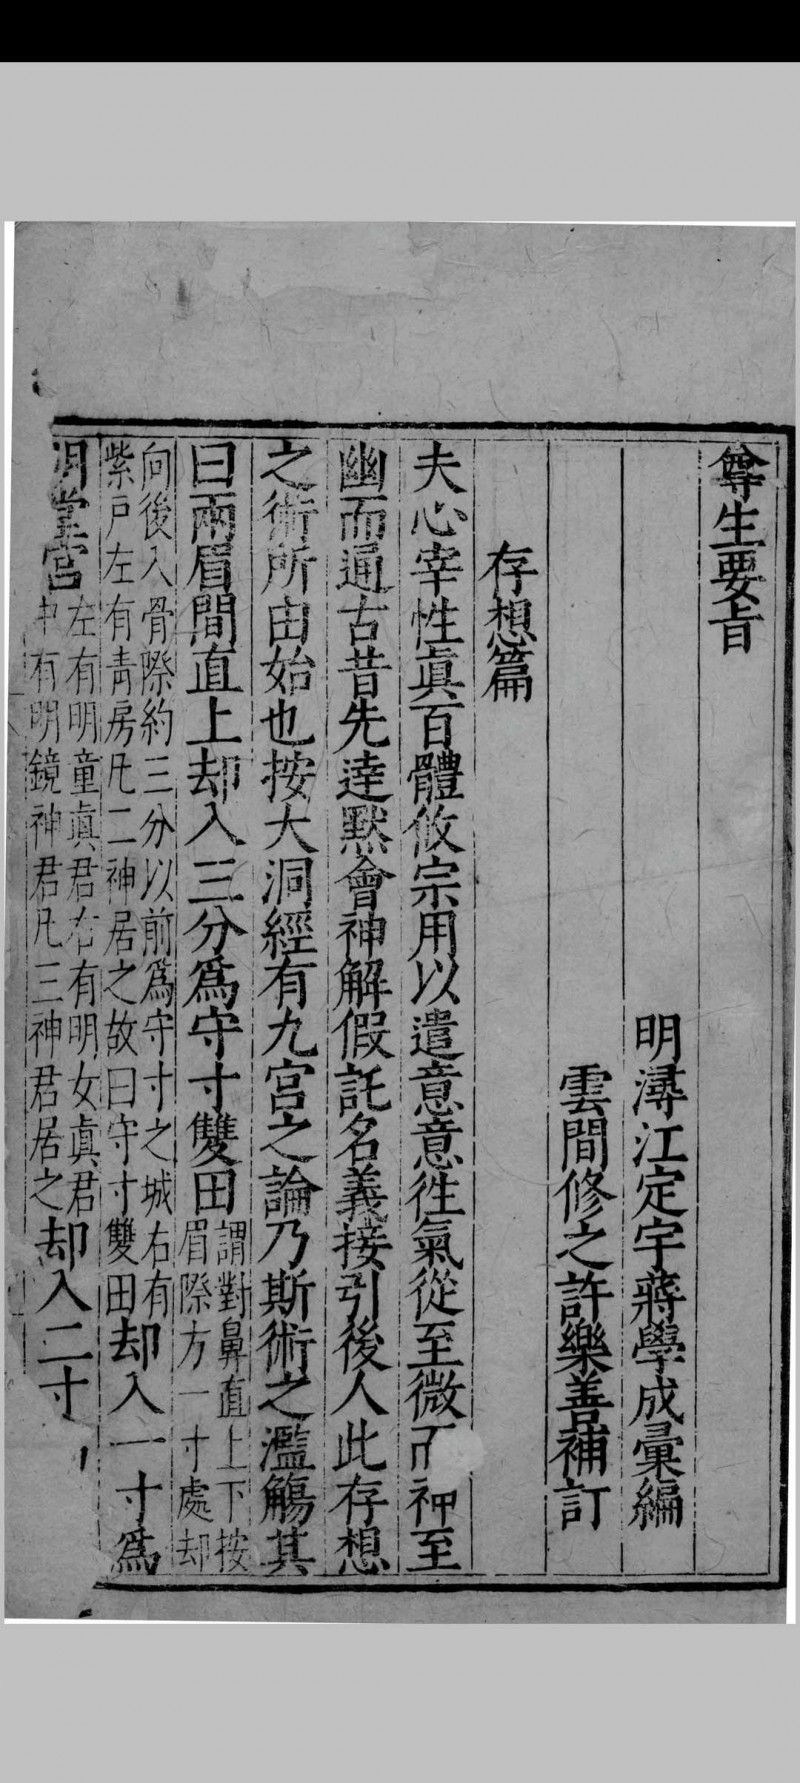 尊生要旨
明潯江定宇蔣學成彙編
雲間修之許樂善補訂
存想篇
夫心宰性眞百體攸宗用以遣意意徃氣從至微而神至
幽而通古昔先逹默會神解假託名義接引後人此存想
之術所由始也按大洞經有九宮之論乃斯術之濫觴其
曰兩眉間直上却入三分爲守寸雙田
謂對鼻直上下按
眉際方一寸處却
向後入骨際約三分以前爲守寸之城右有
紫戸左有青房凡二神居之故曰守寸雙田
却入一寸爲
明堂宮
左有明童眞君右有明女眞君
中有明鏡神君凡三神君居之
却入二寸